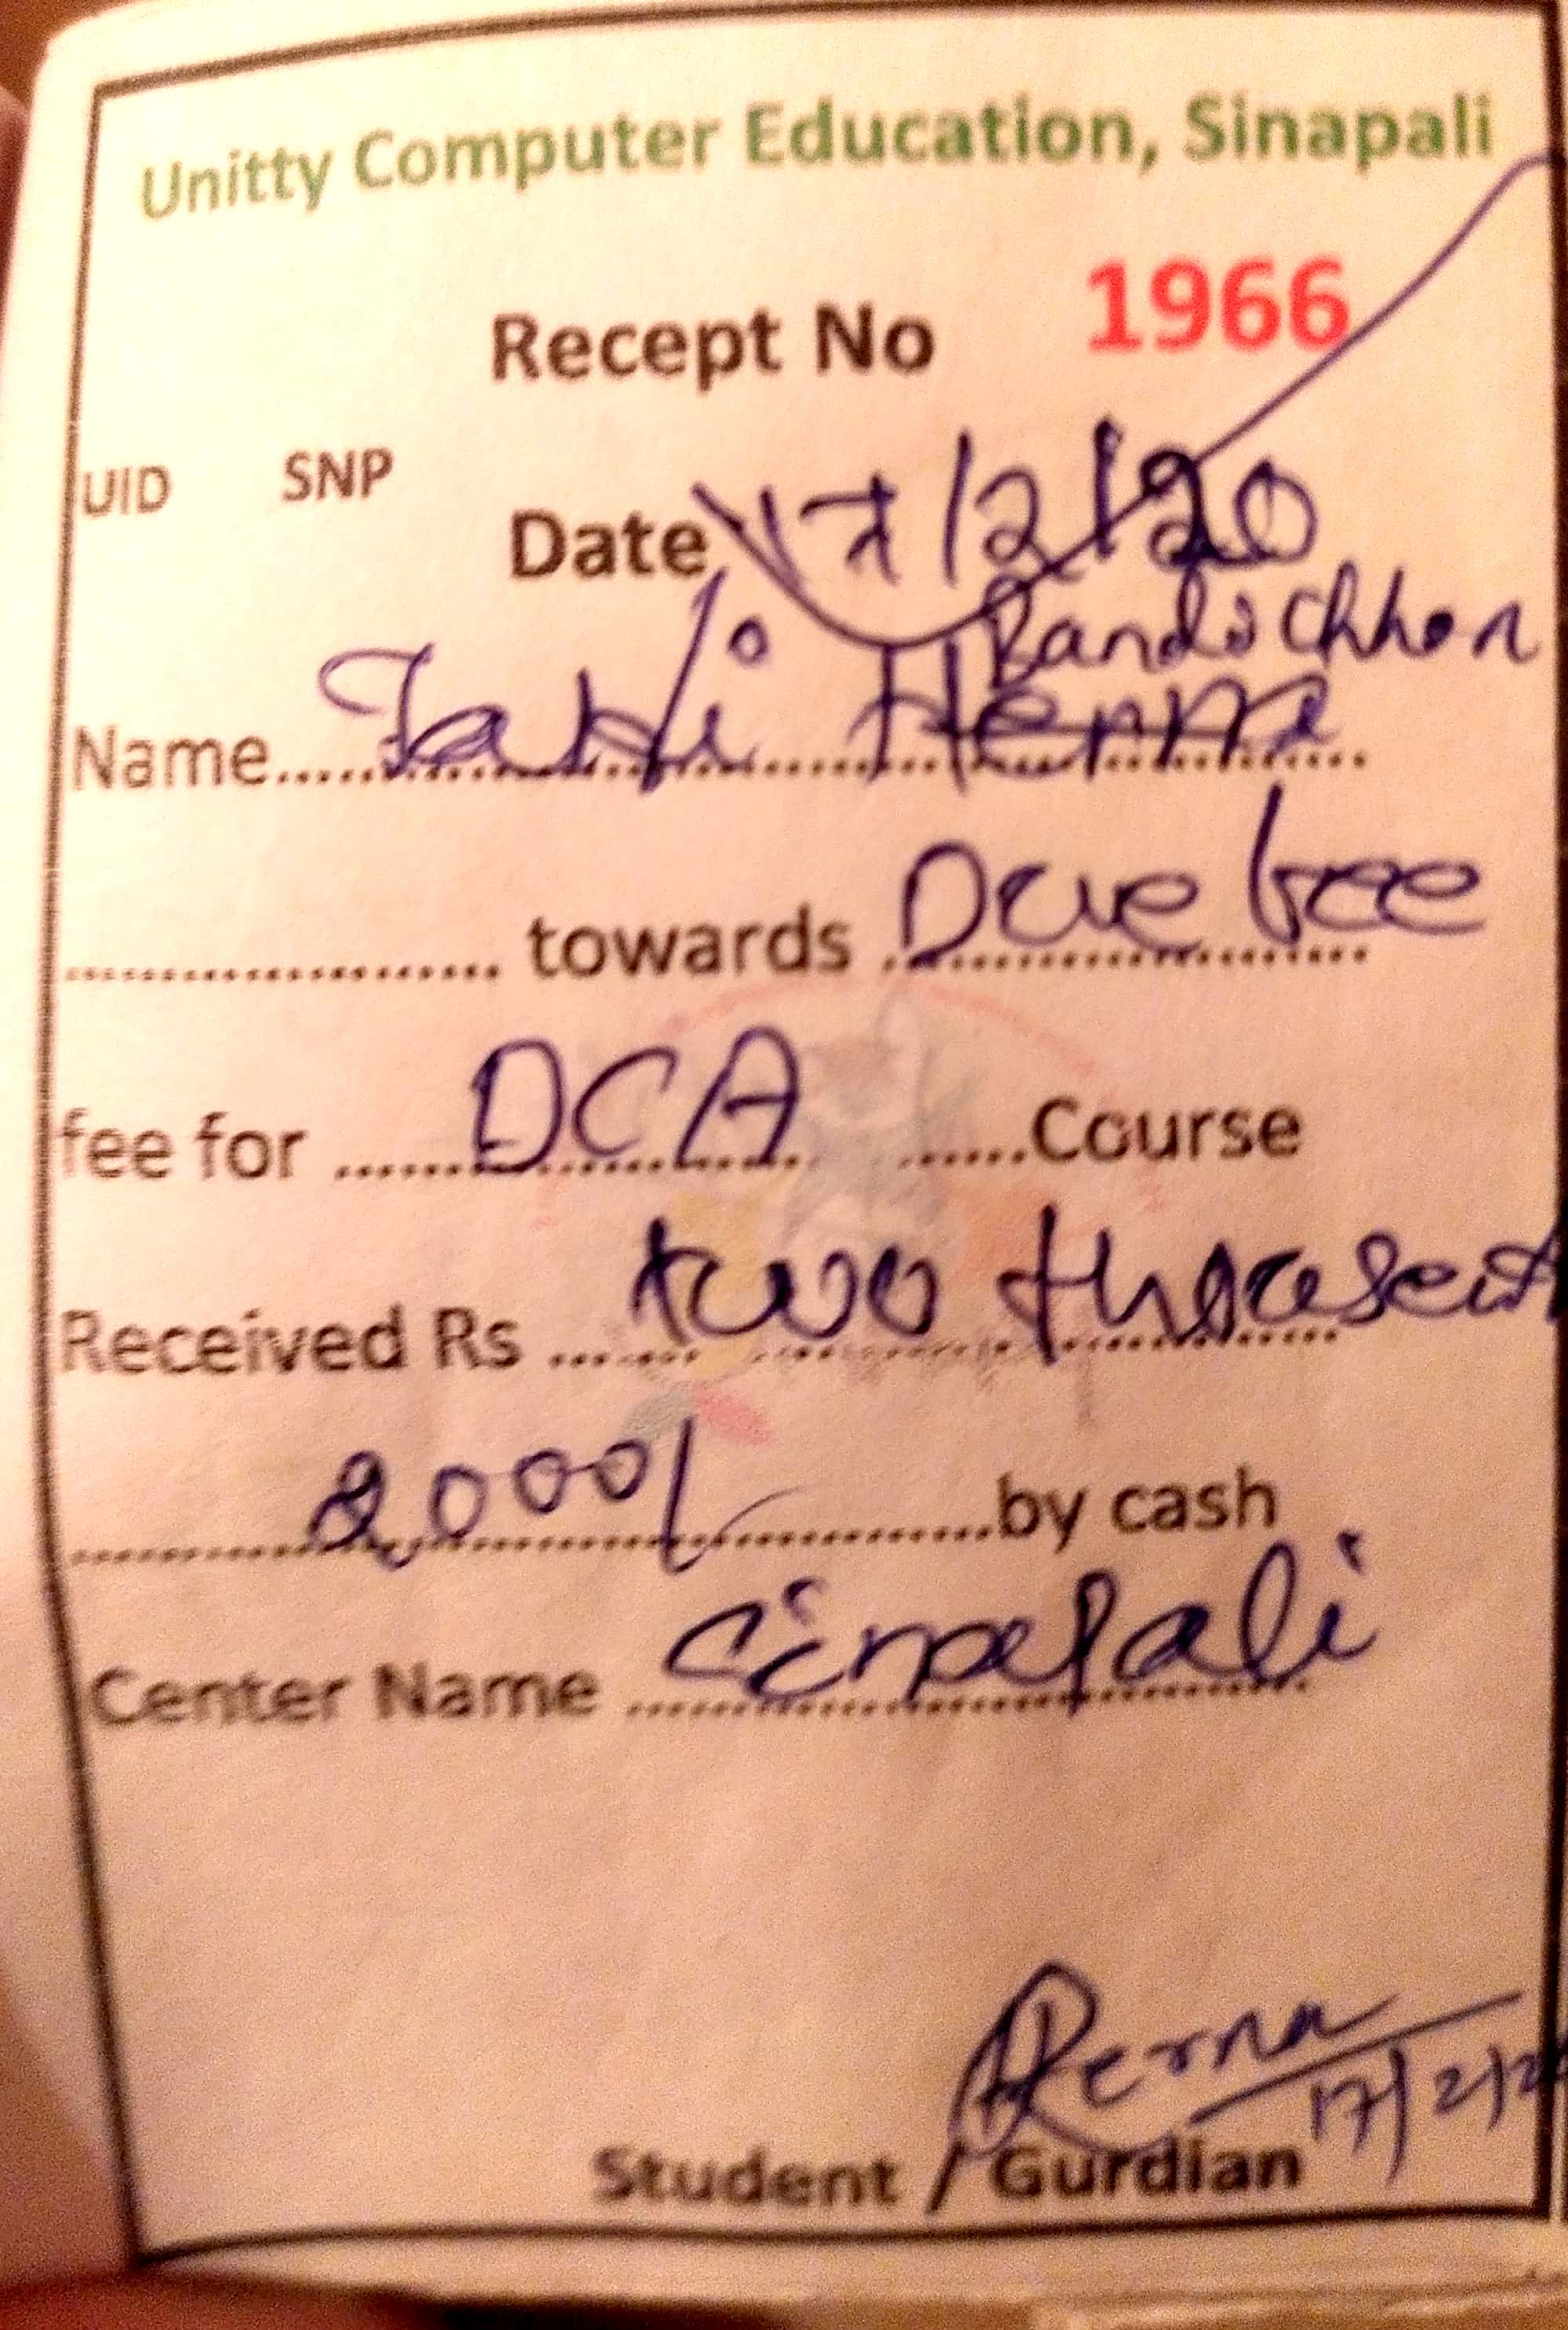 Unitty Computer Education, Sinapali
Recept No 1966
UID SNP
Date 17/2/20
Name...... Henna
.................... towards Due fee
fee for ...... DCA ......Course
Received Rs ...... two
2000/- ......by cash
Center Name ...... Sinapali
17/2/20
Student / Gurdian